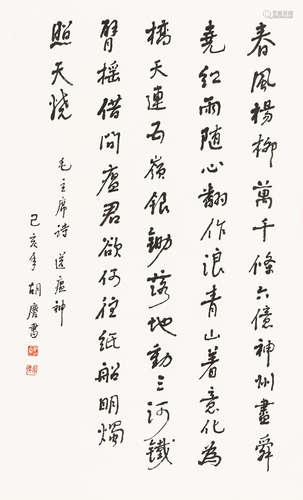 春風楊柳萬千條六億神州盡舜
堯紅雨隨心翻作浪青山着意化為
橋天連五嶺銀鋤落地動三河鐵
臂搖借問瘟君欲何往紙船明燭
照天燒
毛主席詩 送瘟神
己亥年 胡 書